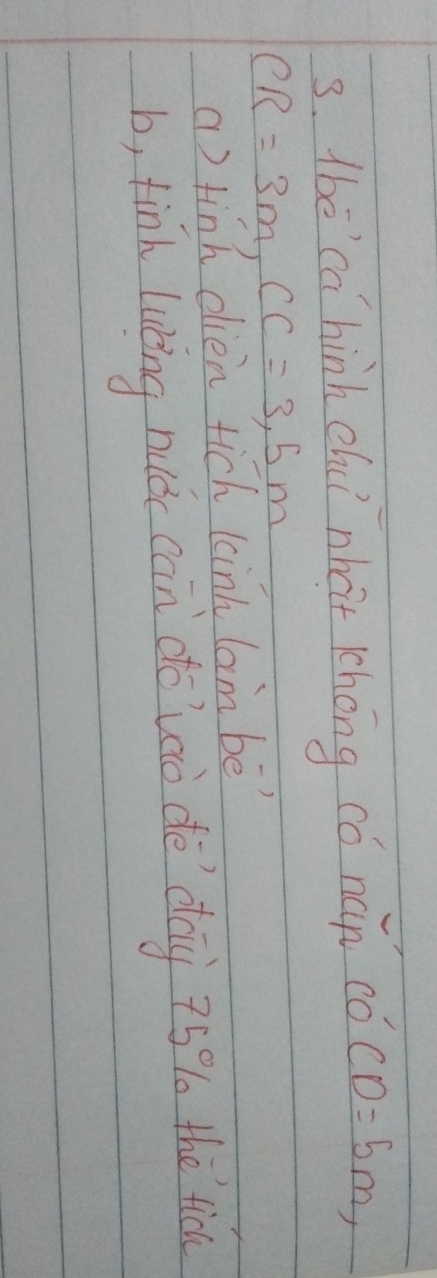 3. 1 bể cá hình chữ nhật không có nắp có CD = 5m,
CR = 3m, CC = 3,5m
a) tính diện tích kính làm bể
b, tính lượng nước cần đổ vào để đầy 75% thể tích